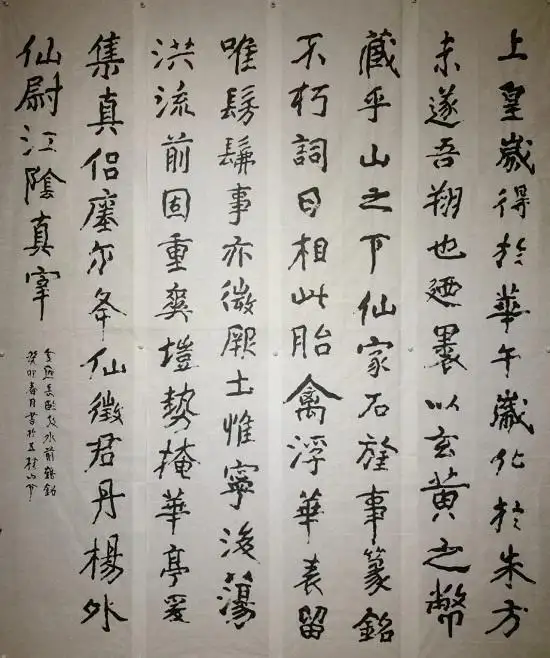 上皇歲得於華午歲化於朱方
未遂吾翔也迺裹以玄黄之幣
藏乎山之下仙家石旌事篆銘
不朽詞曰相此胎禽浮華表留
唯髣髴事亦微厥土惟寧後蕩
洪流前固重爽塏勢掩華亭爰
集真侣瘞尔夅仙徵君丹楊外
仙尉江陰真宰
水前鶴銘
癸卯春月書於山